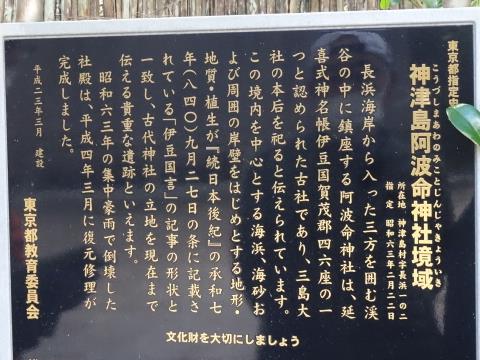 東京都指定史
こうづしまあわのみことじんじゃきょういき
神津島阿波命神社境域
所在地 神津島村字長浜一の二
指定 昭和六三年二月二二日
長浜海岸から入った三方を囲む渓
谷の中に鎮座する阿波命神社は、延
喜式神名帳伊豆国賀茂郡四六座の一
つと認められた古社であり、三島大
社の本后を祀ると伝えられています。
この境内を中心とする海浜、海砂お
よび周囲の岸壁をはじめとする地形・
地質・植生が『続日本後紀』の承和七
年(八四〇)九月二七日の条に記載さ
れている「伊豆国言」の記事の形状と
一致し、古代神社の立地を現在まで
伝える貴重な遺跡といえます。
昭和六三年の集中豪雨で倒壊した
社殿は、平成四年三月に復元修理が
完成しました。
平成二三年三月 建設
東京都教育委員会
文化財を大切にしましょう